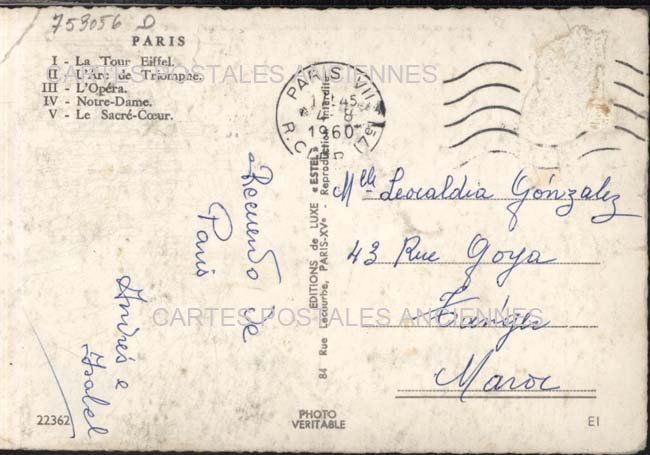 759056 D
PARIS
I - La Tour Eiffel.
II - L'Arc de Triomphe.
III - L'Opéra.
IV - Notre-Dame.
V - Le Sacré-Cœur.
Recuerdo de
Paris
Andrés e
Isabel
22362
PARIS VIII
45
1960
ÉDITIONS de LUXE «ESTEL»
84 Rue Lecourbe, PARIS-XVe - Reproduction Interdite
PHOTO
VÉRITABLE
Melle Leocaldia Gónzalez
43 Rue Goya
Tánger
Maroc
EI
CARTES POSTALES ANCIENNES
CARTES POSTALES ANCIENNES